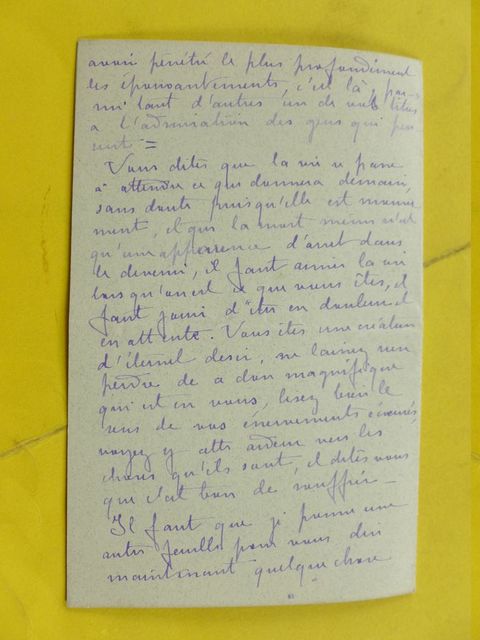 avoir pénétré le plus profondément
les épouvantements, c'est là, par-
mi tant d'autres un de vos titres
a l'admiration des gens qui pen
sent =
Vous dites que la vie se passe
à attendre ce que donnera demain,
sans doute puisqu'elle est mouve
ment, et que la mort même n'est
qu'une apparence d'arrêt dans
le devenir, il faut aimer la vie
lorsqu'on est ce que vous êtes, il
faut jouir d'être en douleur et
en attente. Vous êtes une création
d'éternel desir, ne laissez rien
perdre de ce don magnifique
qui est en vous, lisez bien le
sens de vos énervements
voyez y cette ardeur vers les
choses qu'ils sont, et dites vous
que c'est bon de souffrir _
Il faut que je prenne une
autre feuille pour vous dire
maintenant quelque chose